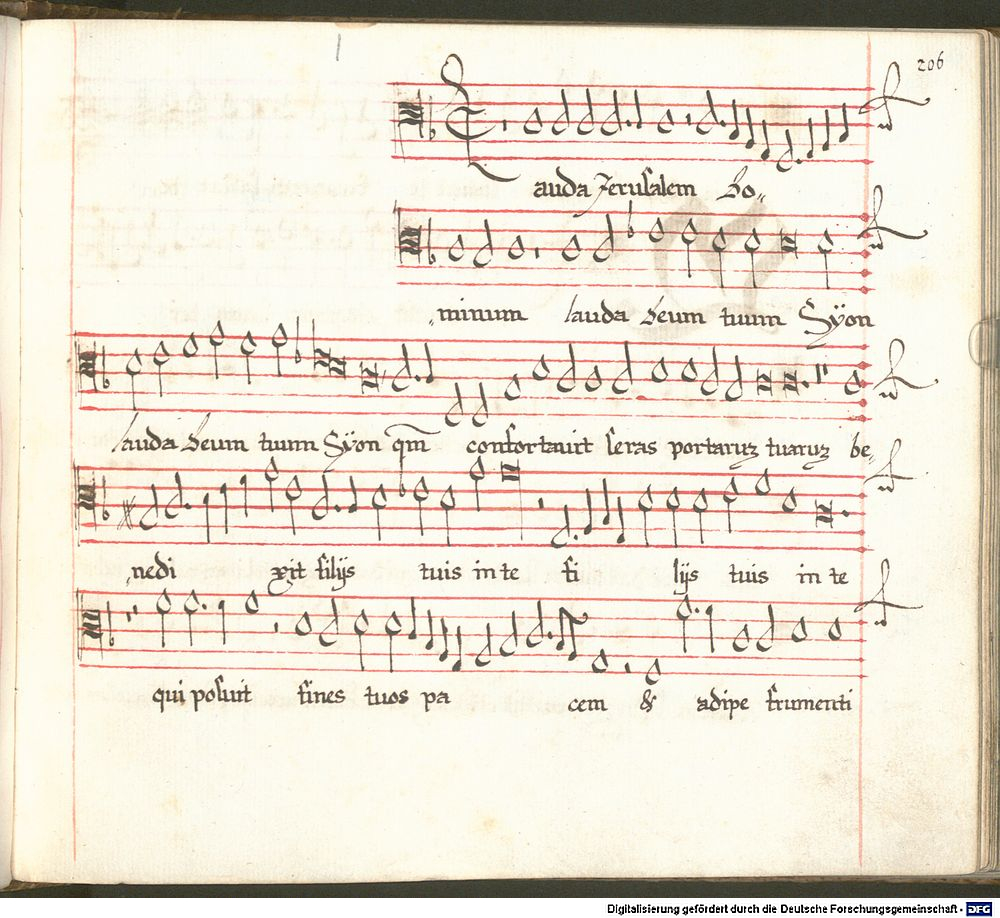 206
auda Jerusalem Do-
minum lauda Deum tuum Sÿon
lauda Deum tuum Sÿon qm̄ confortauit seras portaruz tuaruz be-
nedi xit filijs tuis in te fi lijs tuis in te
qui posuit fines tuos pa cem & adipe frumenti
Digitalisierung gefördert durch die Deutsche Forschungsgemeinschaft - DFG